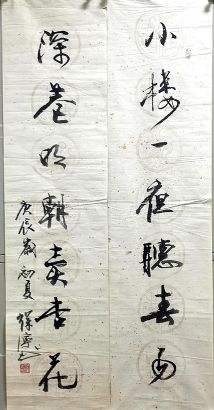 小樓一夜聽春雨
深巷明朝賣杏花
庚辰歲初夏